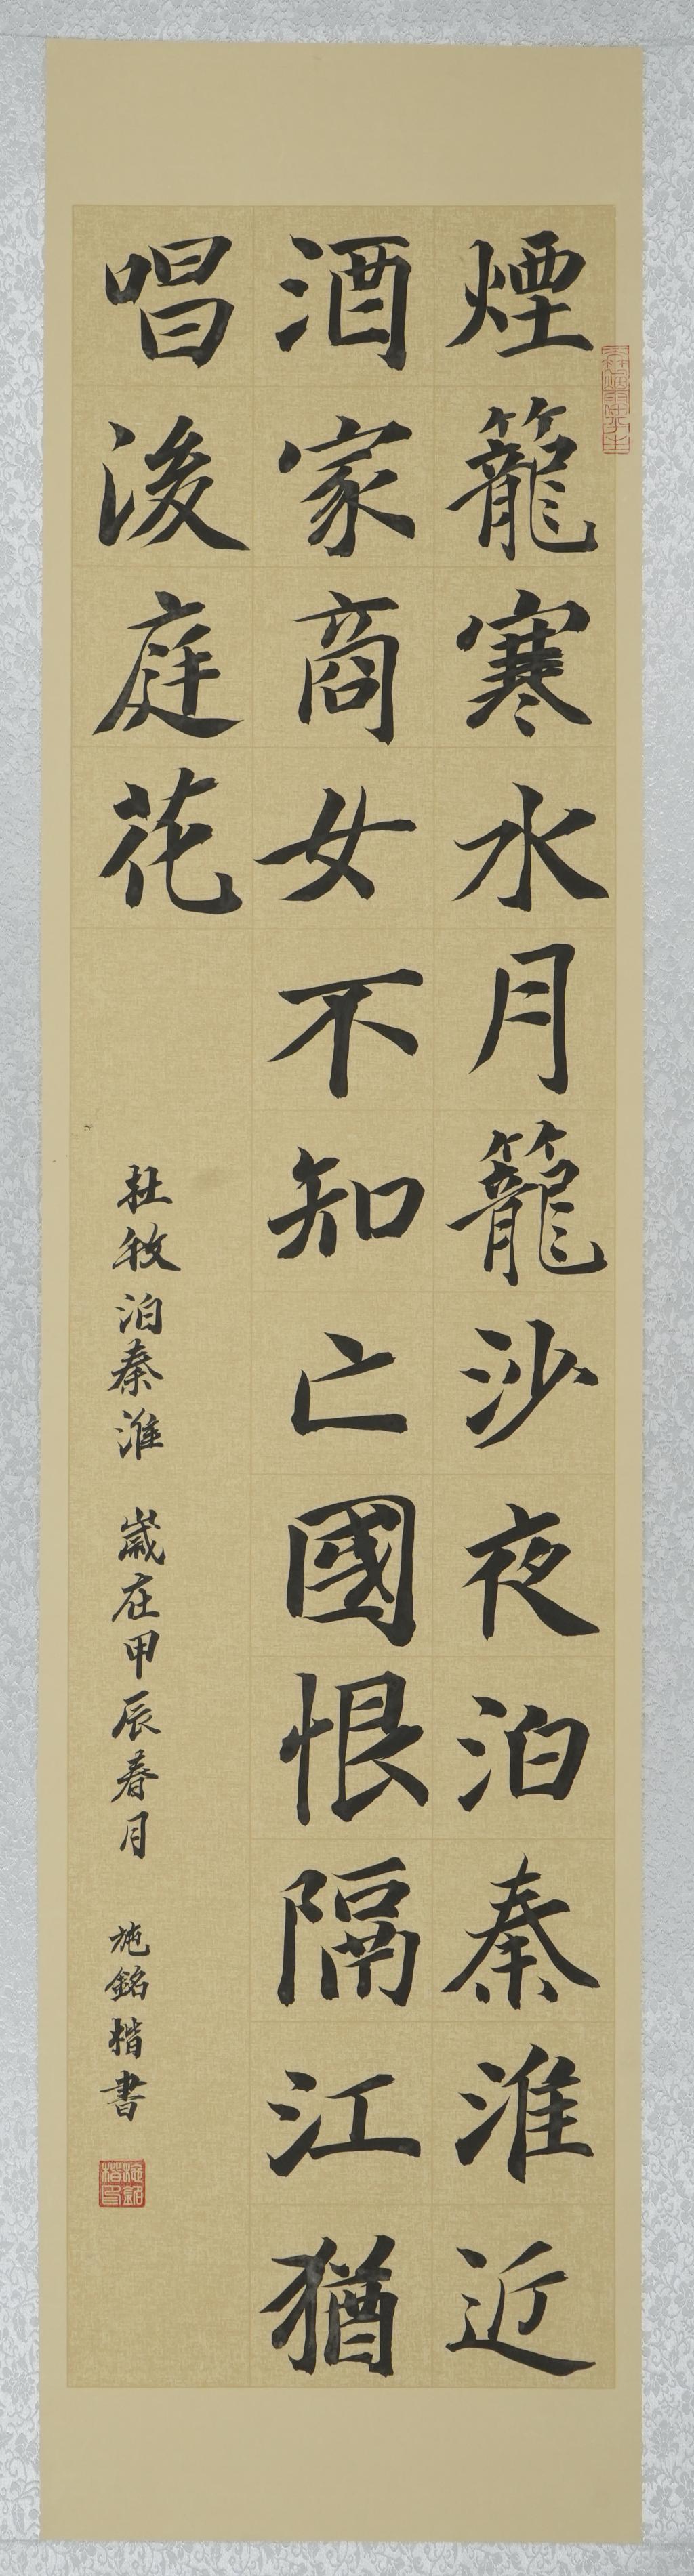 煙籠寒水月籠沙夜泊秦淮近
酒家商女不知亡國恨隔江猶
唱後庭花
杜牧泊秦淮 歲在甲辰春月 施銘楷書
施銘楷印